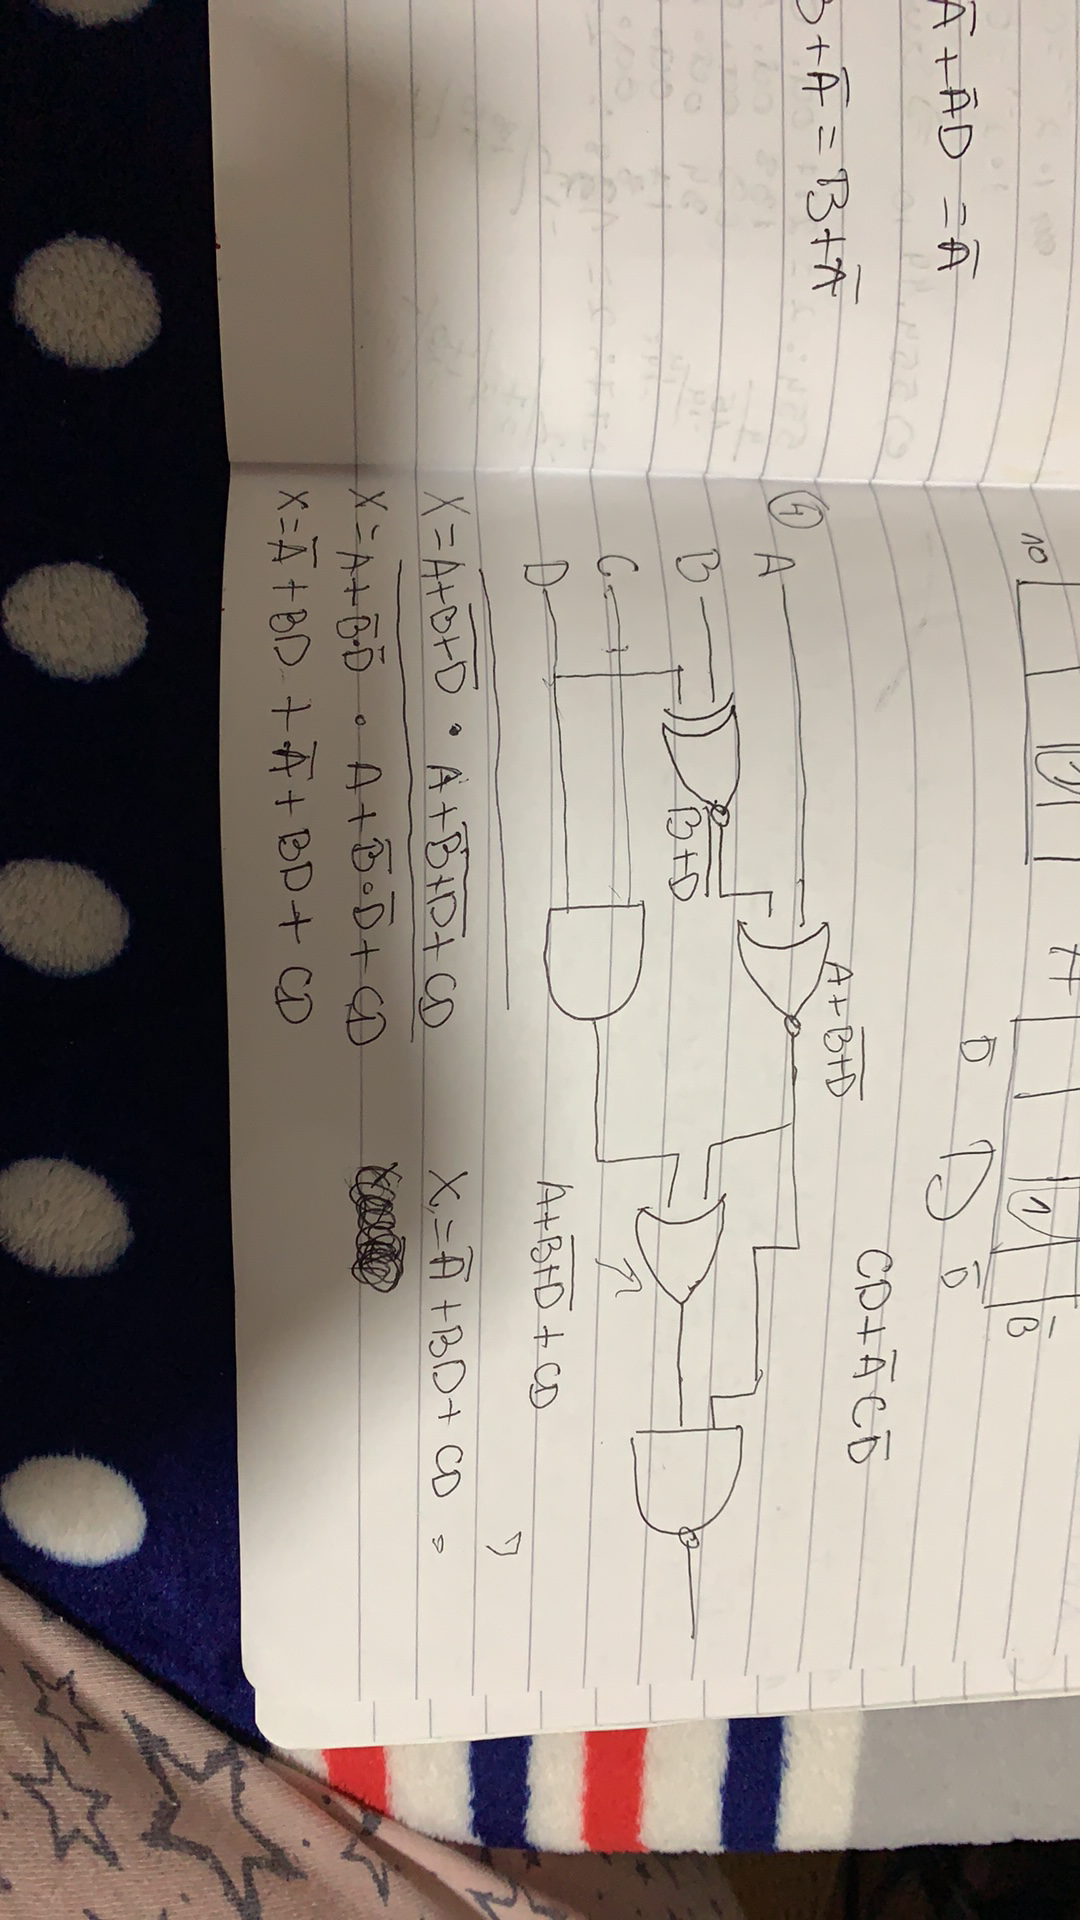 Ā + ĀD = Ā
B + Ā = B + Ā
10
1
A
1
B̅
D̅
D̅
CD + ĀCD̅
④
A
B
C
D
B̅+̅D̅
A + B̅+̅D̅
A + B̅+̅D̅ + CD
X = A + B̅+̅D̅ · A + B̅+̅D̅ + CD
X = A + B̅·D̅ · A + B̅·D̅ + CD
X = Ā + BD + Ā + BD + CD
X = Ā + BD + CD